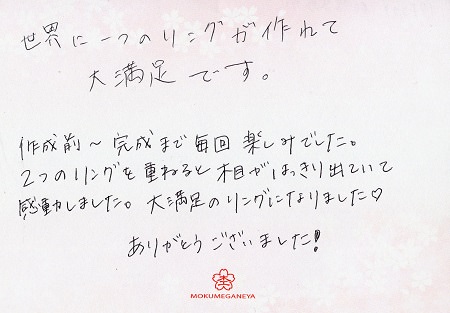 世界に一つのリングが作れて
大満足です。
作成前～完成まで毎回楽しみでした。
2つのリングを重ねると木目がはっきり出ていて
感動しました。大満足のリングになりました♡
ありがとうございました!
MOKUMEGANEYA